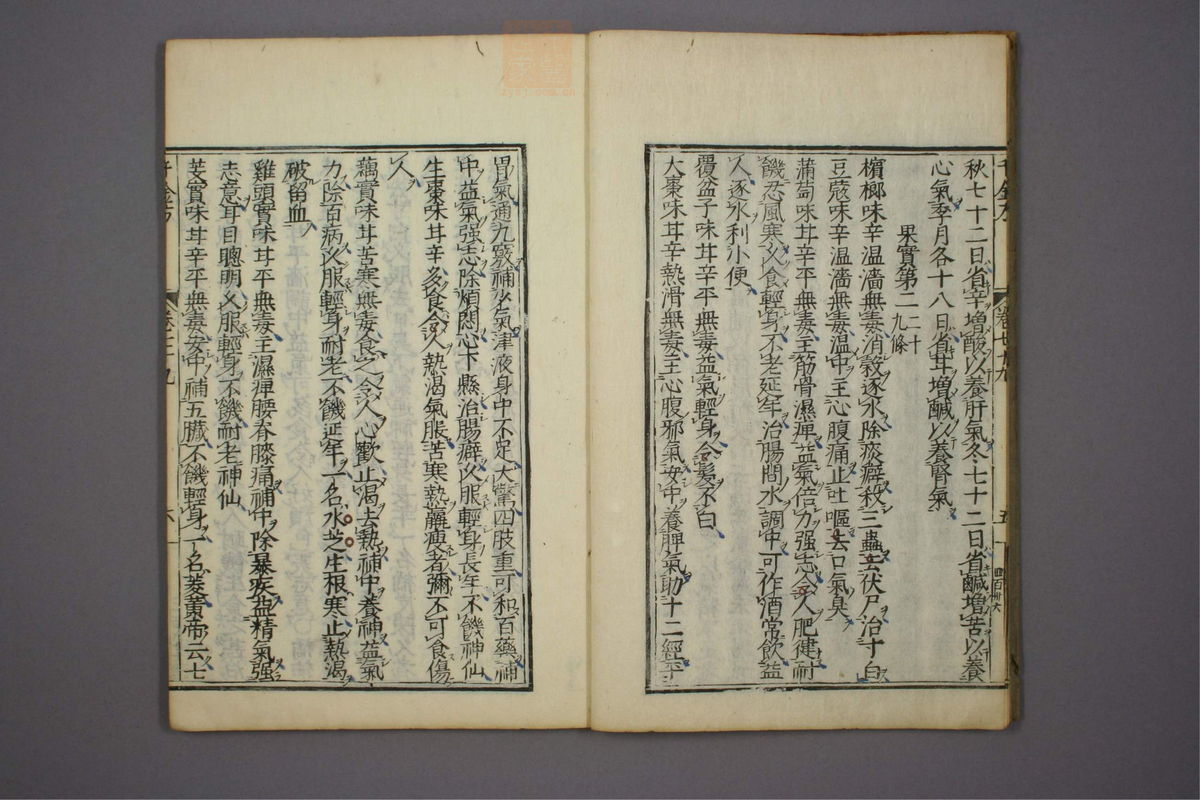 秋七十二日省辛增酸以養肝氣冬七十二日省鹹增苦以養
心氣季月各十八日省甘增鹹以養腎氣
果實第二二十九條
檳榔味辛溫濇無毒消穀逐水除痰癖殺三蟲去伏尸治寸白
豆蔻味辛溫濇無毒溫中主心腹痛止吐嘔去口氣臭
蒲萄味甘辛平無毒主筋骨濕痹益氣倍力强志令人肥健耐
饑忍風寒久食輕身不老延年治腸間水調中可作酒常飲益
人逐水利小便
覆盆子味甘辛平無毒益氣輕身令髮不白
大棗味甘辛熱滑無毒主心腹邪氣安中養脾氣助十二經平
胃氣通九竅補少氣津液身中不足大驚四肢重可和百藥補
中益氣强志除煩悶心下懸治腸澼久服輕身長年不饑神仙
生棗味甘辛多食令人熱渴氣脹苦寒熱羸瘦者彌不可食傷
人
藕實味甘苦寒無毒食之令人心歡止渴去熱補中養神益氣
力除百病久服輕身耐老不饑延年一名水芝生根寒止熱渴
破留血
雞頭實味甘平無毒主濕痹腰脊膝痛補中除暴疾益精氣强
志意耳目聰明久服輕身不饑耐老神仙
芰實味甘辛平無毒安中補五臟不饑輕身一名菱黃帝云七